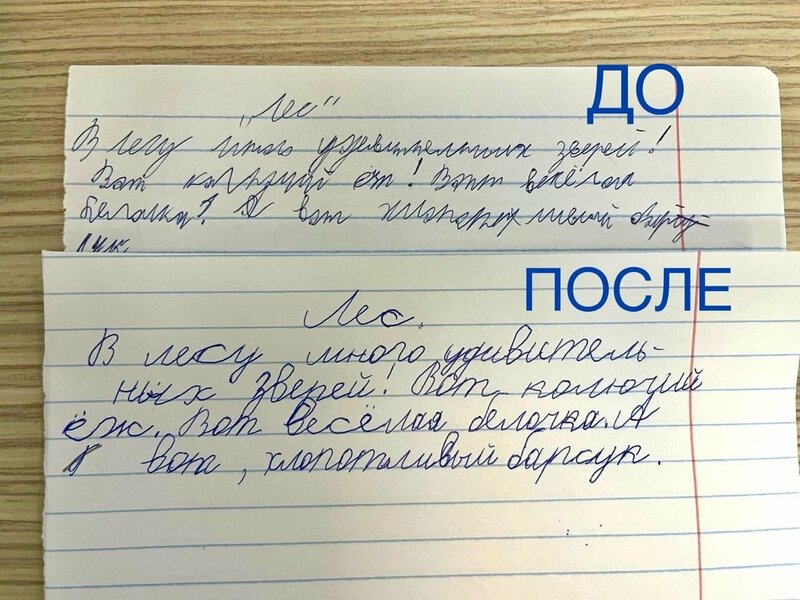 ДО
„Лес“
В лесу много удивительных зверей!
Вот колючий ёж! Вот весёлая
белочка! А вот хлопотливый
ПОСЛЕ
Лес.
В лесу много удивитель-
ных зверей! Вот колючий
ёж. Вот весёлая белочка. А
вот, хлопотливый барсук.